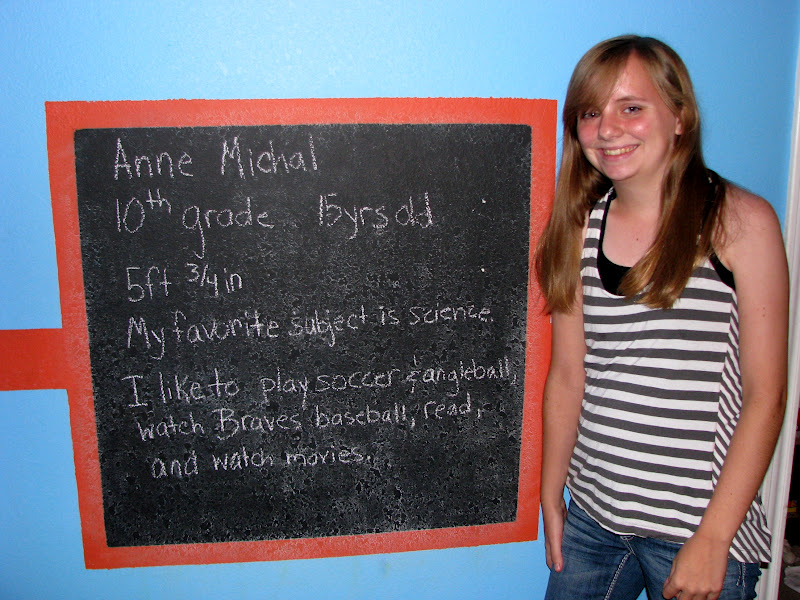 Anne Michal
10th grade 15yrs old
5ft 3/4in
My favorite subject is science.
I like to play soccer & angleball,
watch Braves baseball, read,
and watch movies.